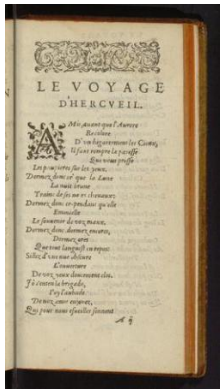 LE VOYAGE
D'HERCVEIL.
AMis, auant que l'Aurore
Recolore
D'vn bigarrement les Cieux,
Il faut rompre la paresse
Que nous presse
Les paupieres sur les yeux.
Dormez donc or' que la Lune
La nuit brune
Traine de ses noirs cheuaux:
Dormez donc ce-pendant qu'elle
Emmielle
Le souuenir de voz maux.
Dormez donc, dormez encores,
Dormez ores
Que tout languist en repos:
Sillez d'vne nue obscure
L'ouuerture
De voz yeux doucement clos.
J'enten la brigade,
J'oy l'aubade
De noz amis enjouez,
Qui pour nous esueiller sonnent
A ij